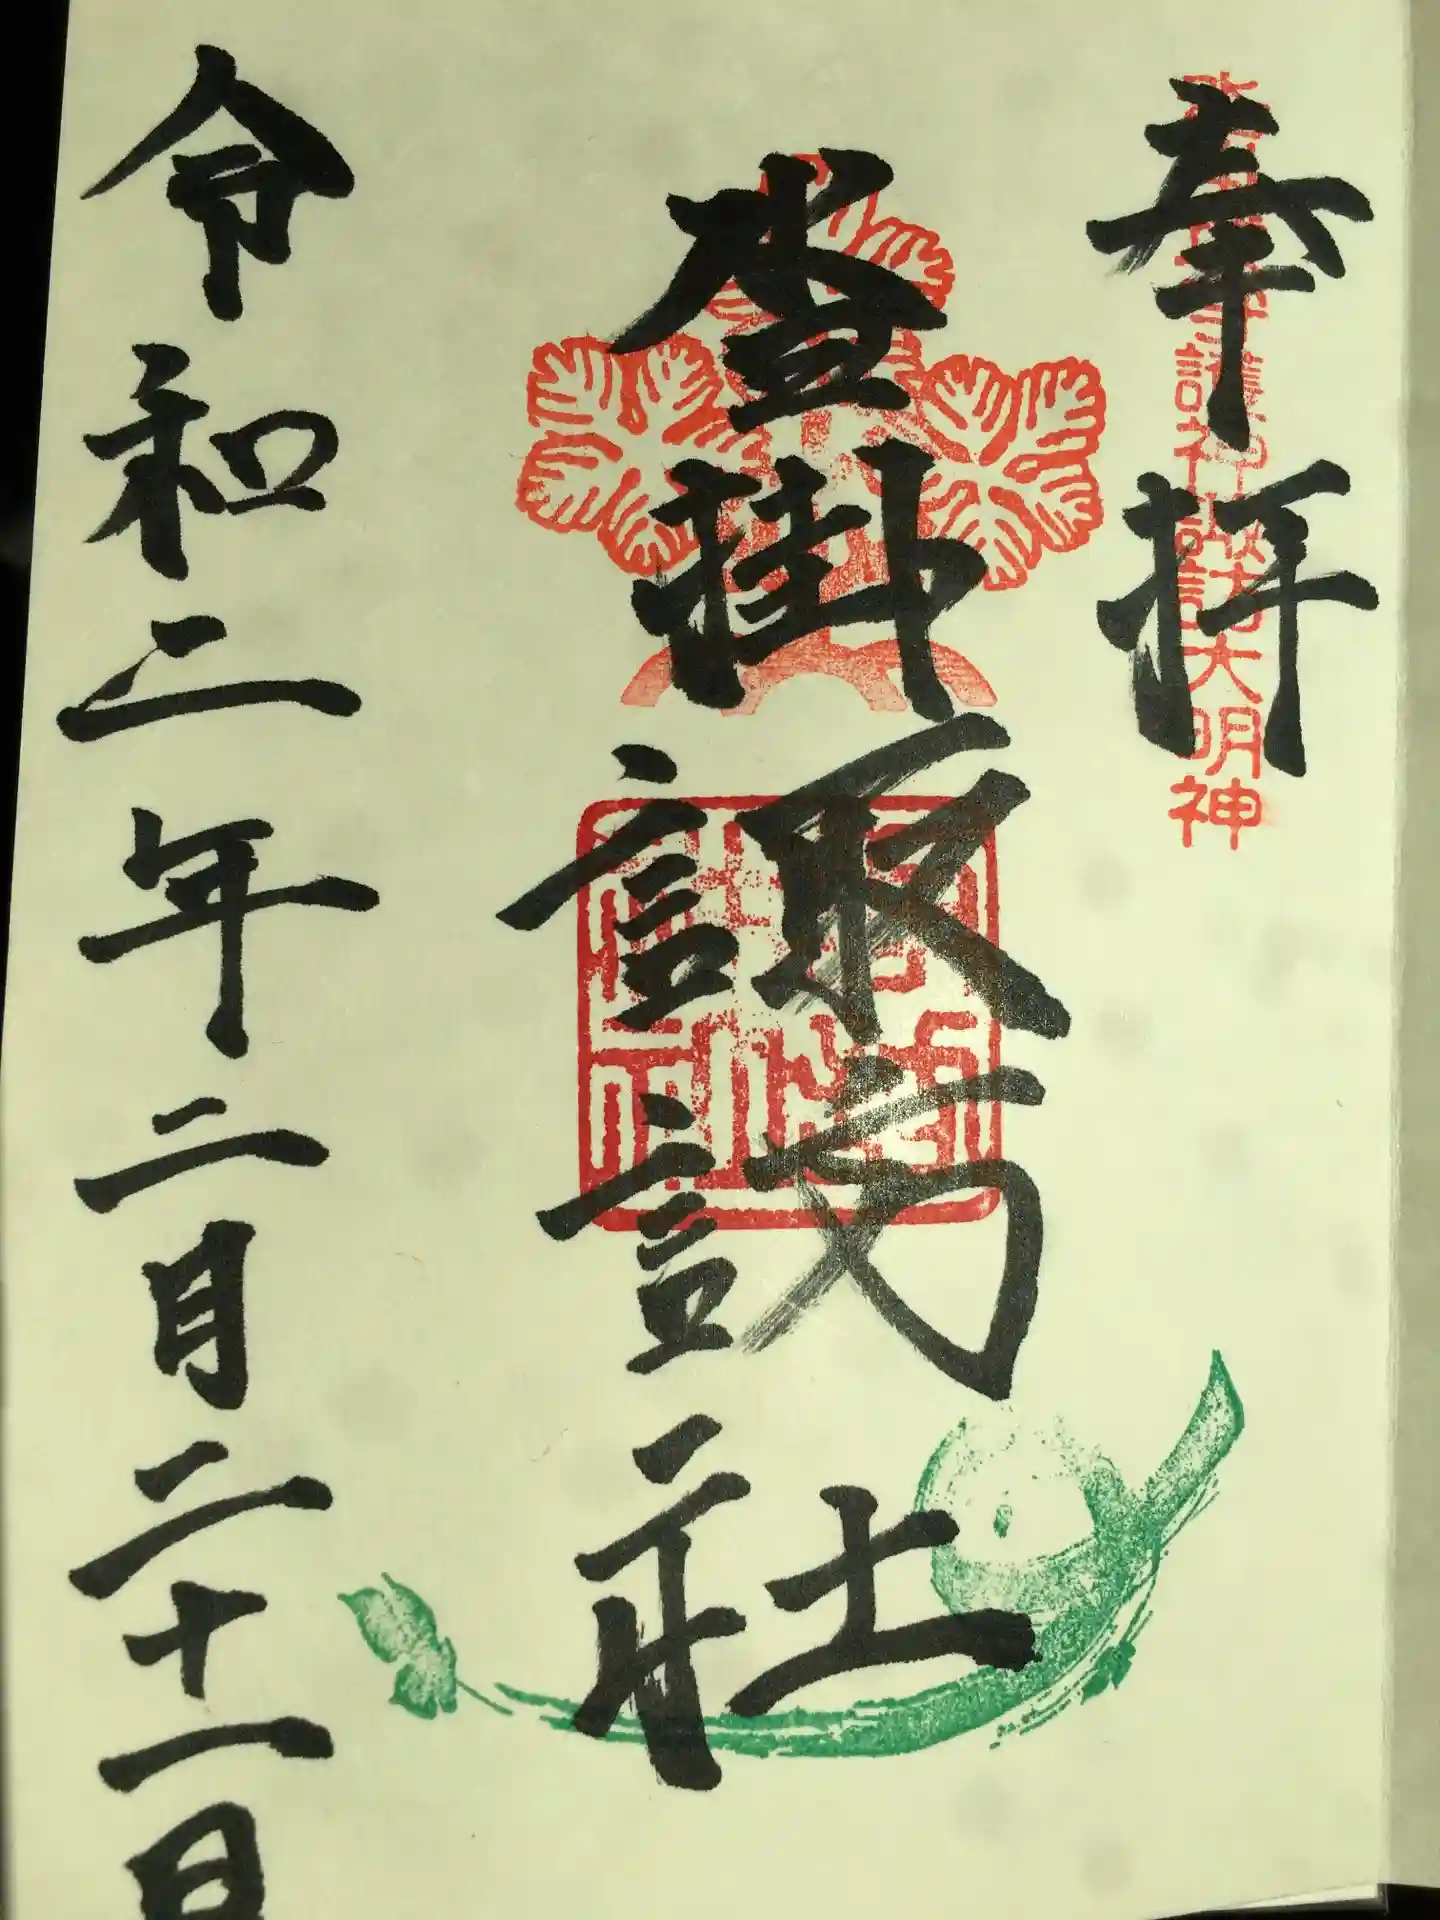 奉拝
沓掛諏訪社
令和二年二月二十一日
護神諏訪大明神